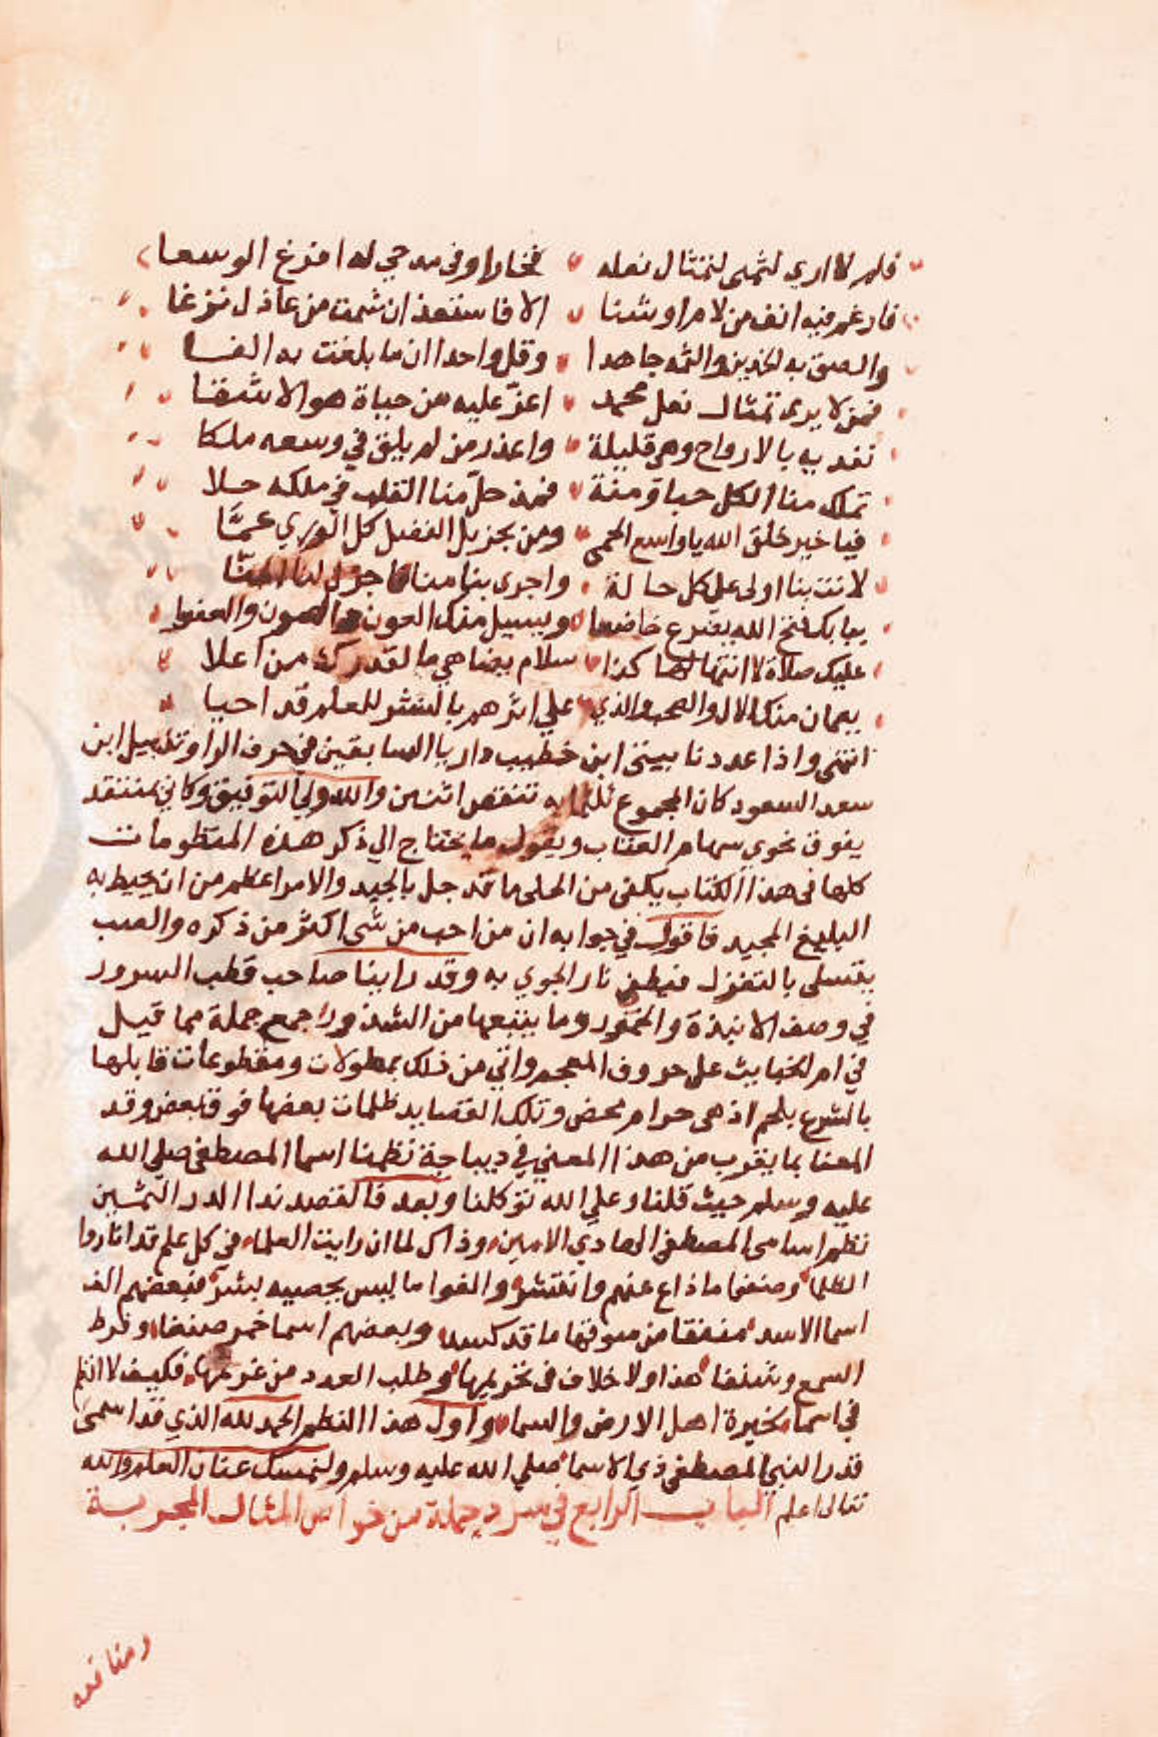 فلم لا اري لثمى لتمثال نعله فخارا وفى مدحي له افرغ الوسعا
فارغم فيه انف من لام او شنا الا فاستعذ ان شمت من عاذل نزغا
والصق به الخدين والثمه جاهدا وقل واحدا ان ما بلغت به الفا
فمن لا يرى تمثال نعل محمد اعز عليه من حياة هو الاشقا
نفديه بالارواح وهى قليلة واعذر من لم يلق في وسعه ملكا
تملك منا الكل حبا ومنة فمذ حل منا القلب في ملكه حلا
فيا خير خلق الله يا واسع الحمى ومن بجزيل الفضل كل الوري عما
لانت بنا اولى على كل حالة واجرى بنا منا
ببابك فتح الله يضرع خاضعا ويسيل منك العون والصون والعفوا
عليك صلاة لا انتها لها كذا سلام يضاهي ما لقدرك من اعلا
يعمان منك الال والصحب والذي علي اثرهم بالنشر للعلم قد احيا
انتهى واذا عددنا بيتى ابن خطيب داريا السابقين في حرف الرا وتذييل ابن
سعد السعود كان المجموع ثلثماية تنقص اثنين والله ولي التوفيق وكاني بمنتقد
يفوق نحوي سهام العتاب ويقول ما يحتاج الي ذكر هذه المنظومات
كلها فى هذا الكتاب يكفى من الحلى ما قد جل بالجيد والامر اعظم من ان يحيط به
البليغ المجيد فاقول في جوابه ان من احب من شى اكثر من ذكره والصب
يتسلى بالتغزل فيطفي نار الجوي به وقد راينا صاحب قطب السرور
في وصف الانبذة والخمور وما يتبعها من الشذور جمع جملة مما قيل
في ام الخبايث على حروف المعجم واتي من ذلك بمطولات ومقطوعات قابلها
بالشرع يلحم اذ هى حرام محض وتلك القصايد ظلمات بعضها فوق بعض وقد
المعنا بما يقرب من هذا المعني في ديباجة نظمنا اسما المصطفى صلي الله
عليه وسلم حيث قلنا وعلي الله توكلنا وبعد فالقصد بذا الدر الثمين
نظم اسامى المصطفى الهادي الامين وذاك لما ان رايت العلما فى كل علم قد اناروا
الظلما وصنفوا ما ذاع عنهم وانتشر والفوا ما ليس يحصيه بشر فبعضهم الف
اسما الاسد منفقا من سوقها ما قد كسد وبعضهم اسما خمر صنفا وقرط
السمع وشنفا هذا ولا خلاف فى تحريمها وطلب العدد من غريمها فكيف لا انظم
في اسما خيرة اهل الارض والسما واول هذا النظم الحمد لله الذي قد اسمى
قدر النبي المصطفى ذي الاسما صلي الله عليه وسلم ولنمسك عنان القلم والله
تعالى اعلم الباب الرابع في سرد جملة من خواص المثال المجربة
ومنافعه